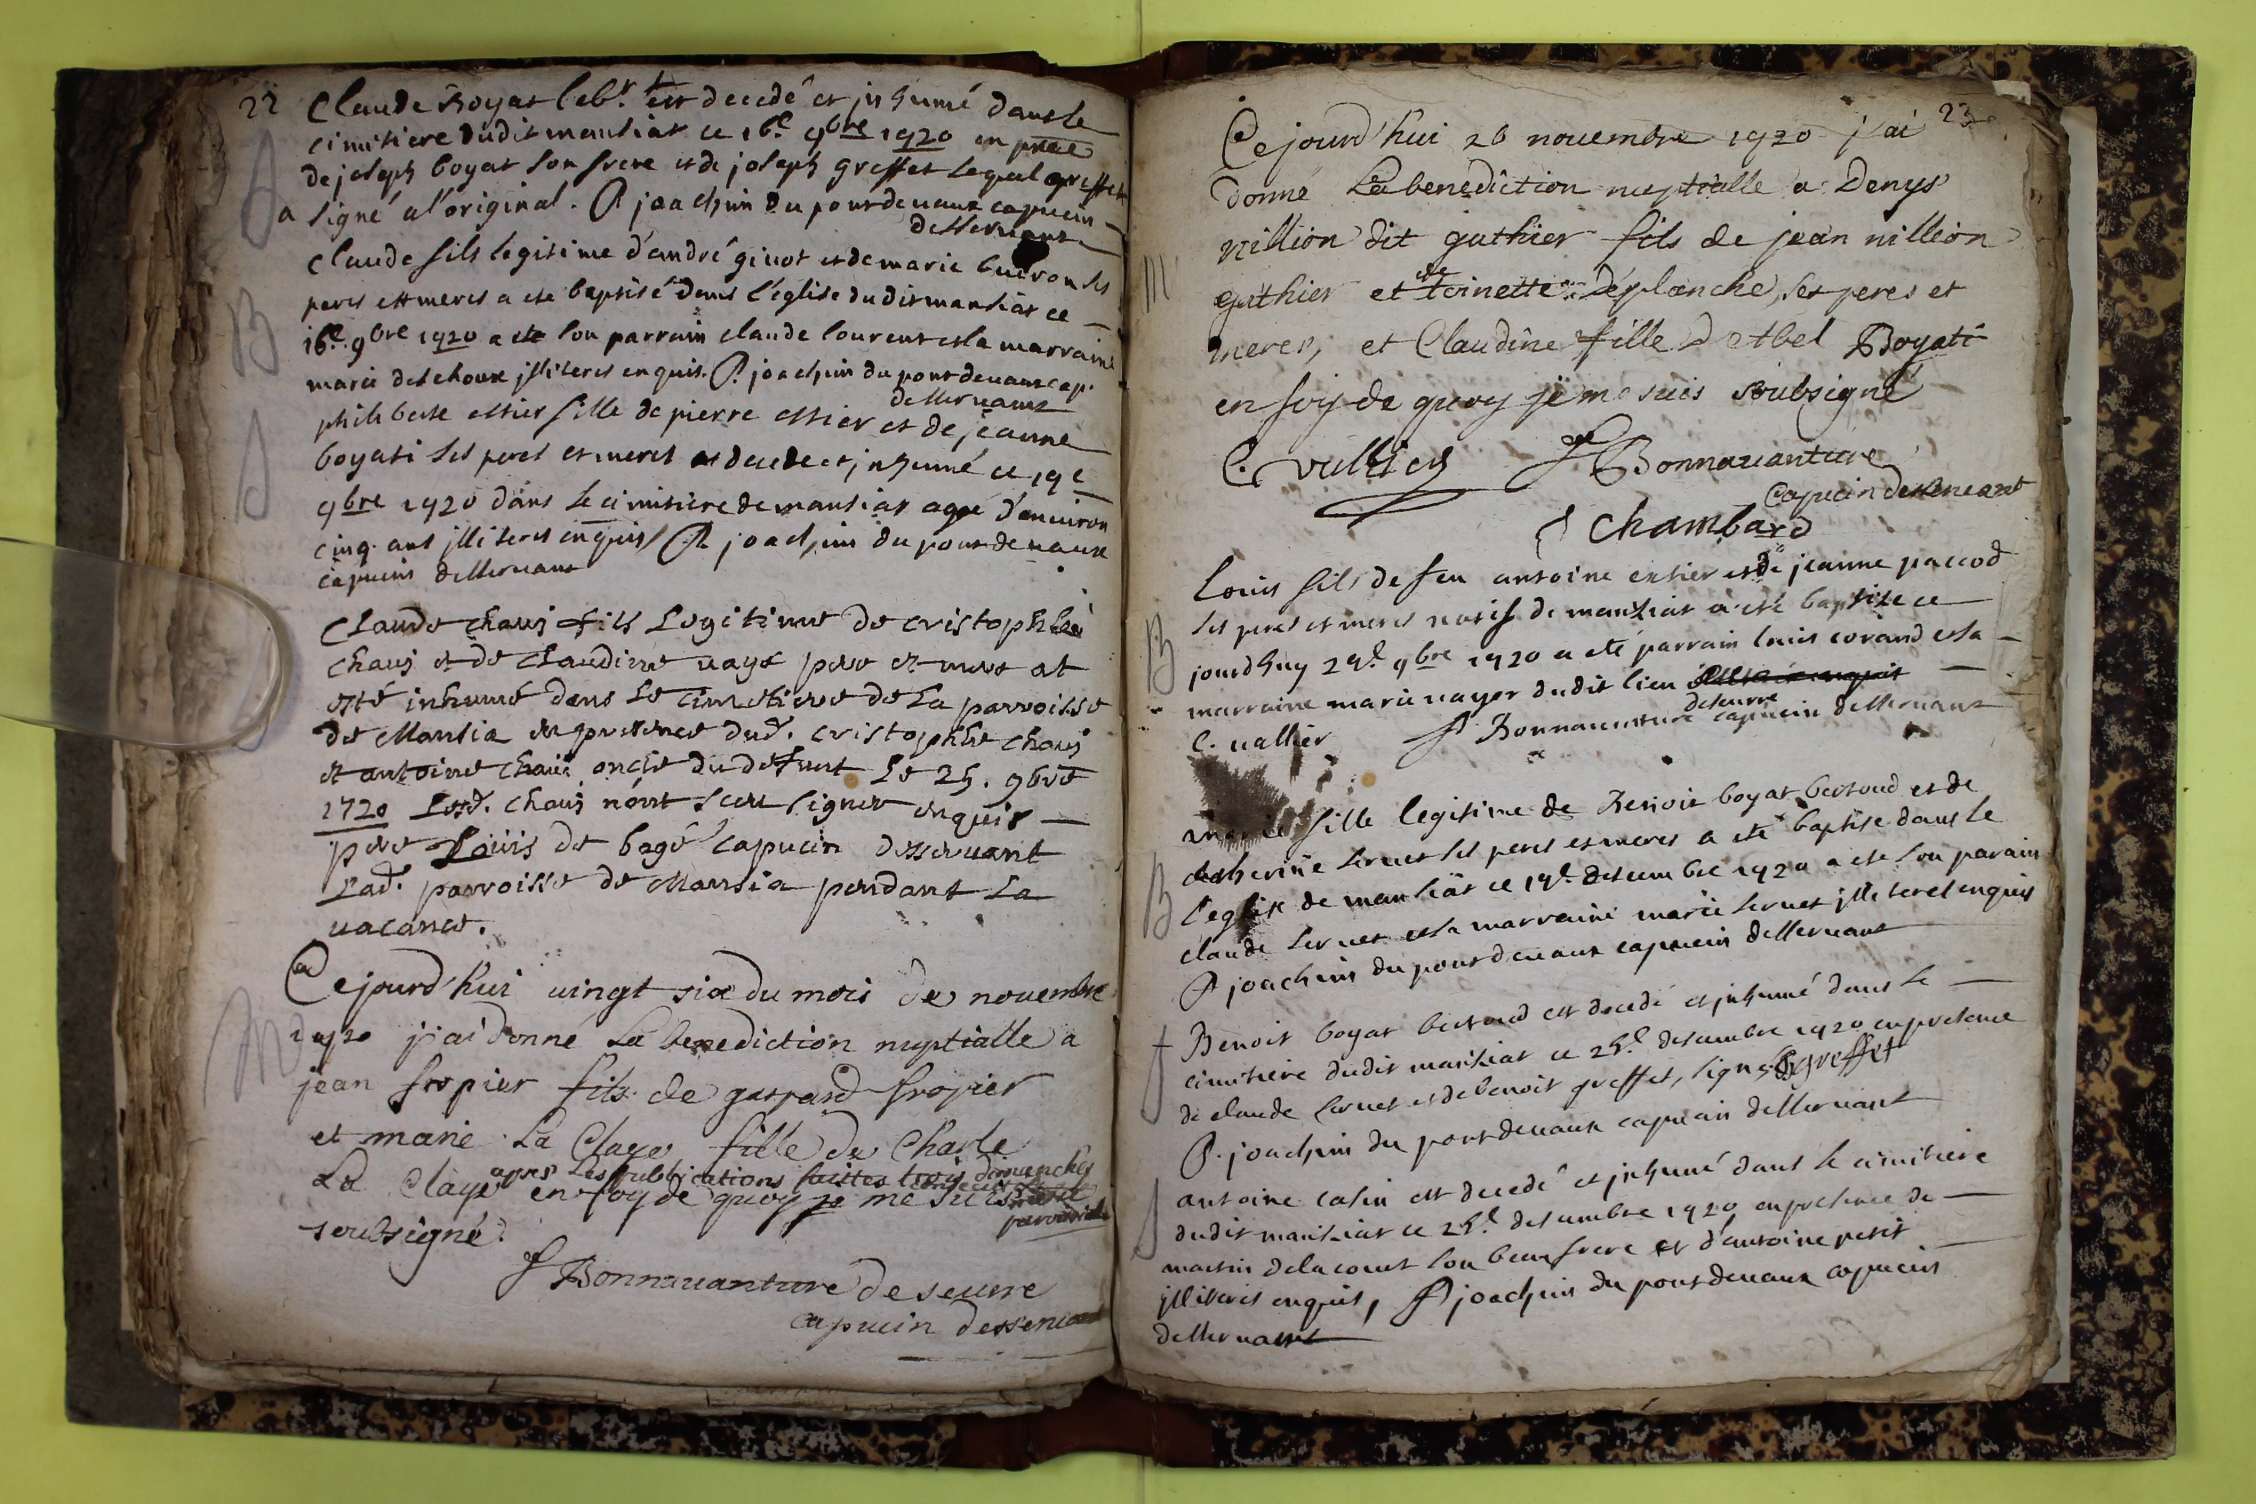 22
Claude Boyat leb.r est decedé et inhumé dans le
cimitiere dudit mansiat ce 16e 9bre 1720 en pnce
de joseph boyat son frere et de joseph greffet lequel greffet
a signé a l'original. P joachim du pontdevaux capucin
desservant
Claude fils legitime d'andré givot et de marie buiron ses
peres ett meres a ete baptisé dans l'église dudit mansiat ce
16e 9bre 1720 a ete son parrain claude lourent et la marraine
marie deschoux illiteres enquis. P. joachim du pontdevaux cap.
desservant
philiberte essier fille de pierre essier et de jeanne
boyati ses peres et meres est decedé et inhumé ce 19e
9bre 1720 dans le cimitiere de mansiat agé d'environ
cinq ans illiteres enquis P joachim du pontdevaux
capucin desservant
Claude chavj fils Legitime de cristophle
chavj et de claudine vaye pere et mere at
esté inhumé dans le cimetiere de La parroisse
de Mansia en presence dud. cristophle chavj
et antoine chavj oncle du defunt Le 25. 9bre
1720 Lesd. chavj n'ont sceu signer enquis
pere Loüis de bagé capucin desservant
Lad. parroisse de Mansia pendant La
vacance.
Cejourd'hui vingt six du mois de novembre
1720 j'ai donné La benediction nuptialle a
jean fropier fils de gaspard fropier
et marie La Claye fille de Charle
apres Les publications faittes trois dimanches
La Claye en foy de quoy je me suis
soubsigné.
f Bonnavanture de seurre
capucin desservant
23
Cejourd'hui 26 novembre 1720 j'ai
donné La benediction nuptialle a Denys
villion dit guthier fils de jean villion
guthier et de toinette Deplanche, ses peres et
meres, et Claudine fille d'Abel Boyati
en foy de quoy je me suis soubsigné
C. vullier f Bonnavanture
Capucin desservant
Chambard
Louis fils de feu antoine essier et de jeanne paccod
ses peres et meres natifs de mansiat a eté baptise ce
jourdhuy 29e 9bre 1720 a eté parrain louis corand et la
marraine marie vayer dudit lieu
C. vallier f Bonnaventure deseurre capucin desservant
marie fille legitime de Benoit boyat bertoud et de
catherine servet ses peres et meres a eté baptise dans le
l'eglise de mansiat ce 19e desembre 1720 a ete son parain
claude servet et la marraine marie servet illiteres enquis
P joachim du pontdevaux capucin desservant
Benoit boyat bertoud est decedé et inhumé dans le
cimitiere dudit mansiat ce 25e desembre 1720 en presence
de claude servet et de benoit greffet, signé B greffet
P. joachim du pontdevaux capucin desservant
antoine casin est decedé et inhumé dans le cimitiere
dudit mansiat ce 25e desembre 1720 en presence de
martin delacourt son beau frere et d'antoine petit
illiteres enquis, P joachim du pontdevaux capucin
desservant